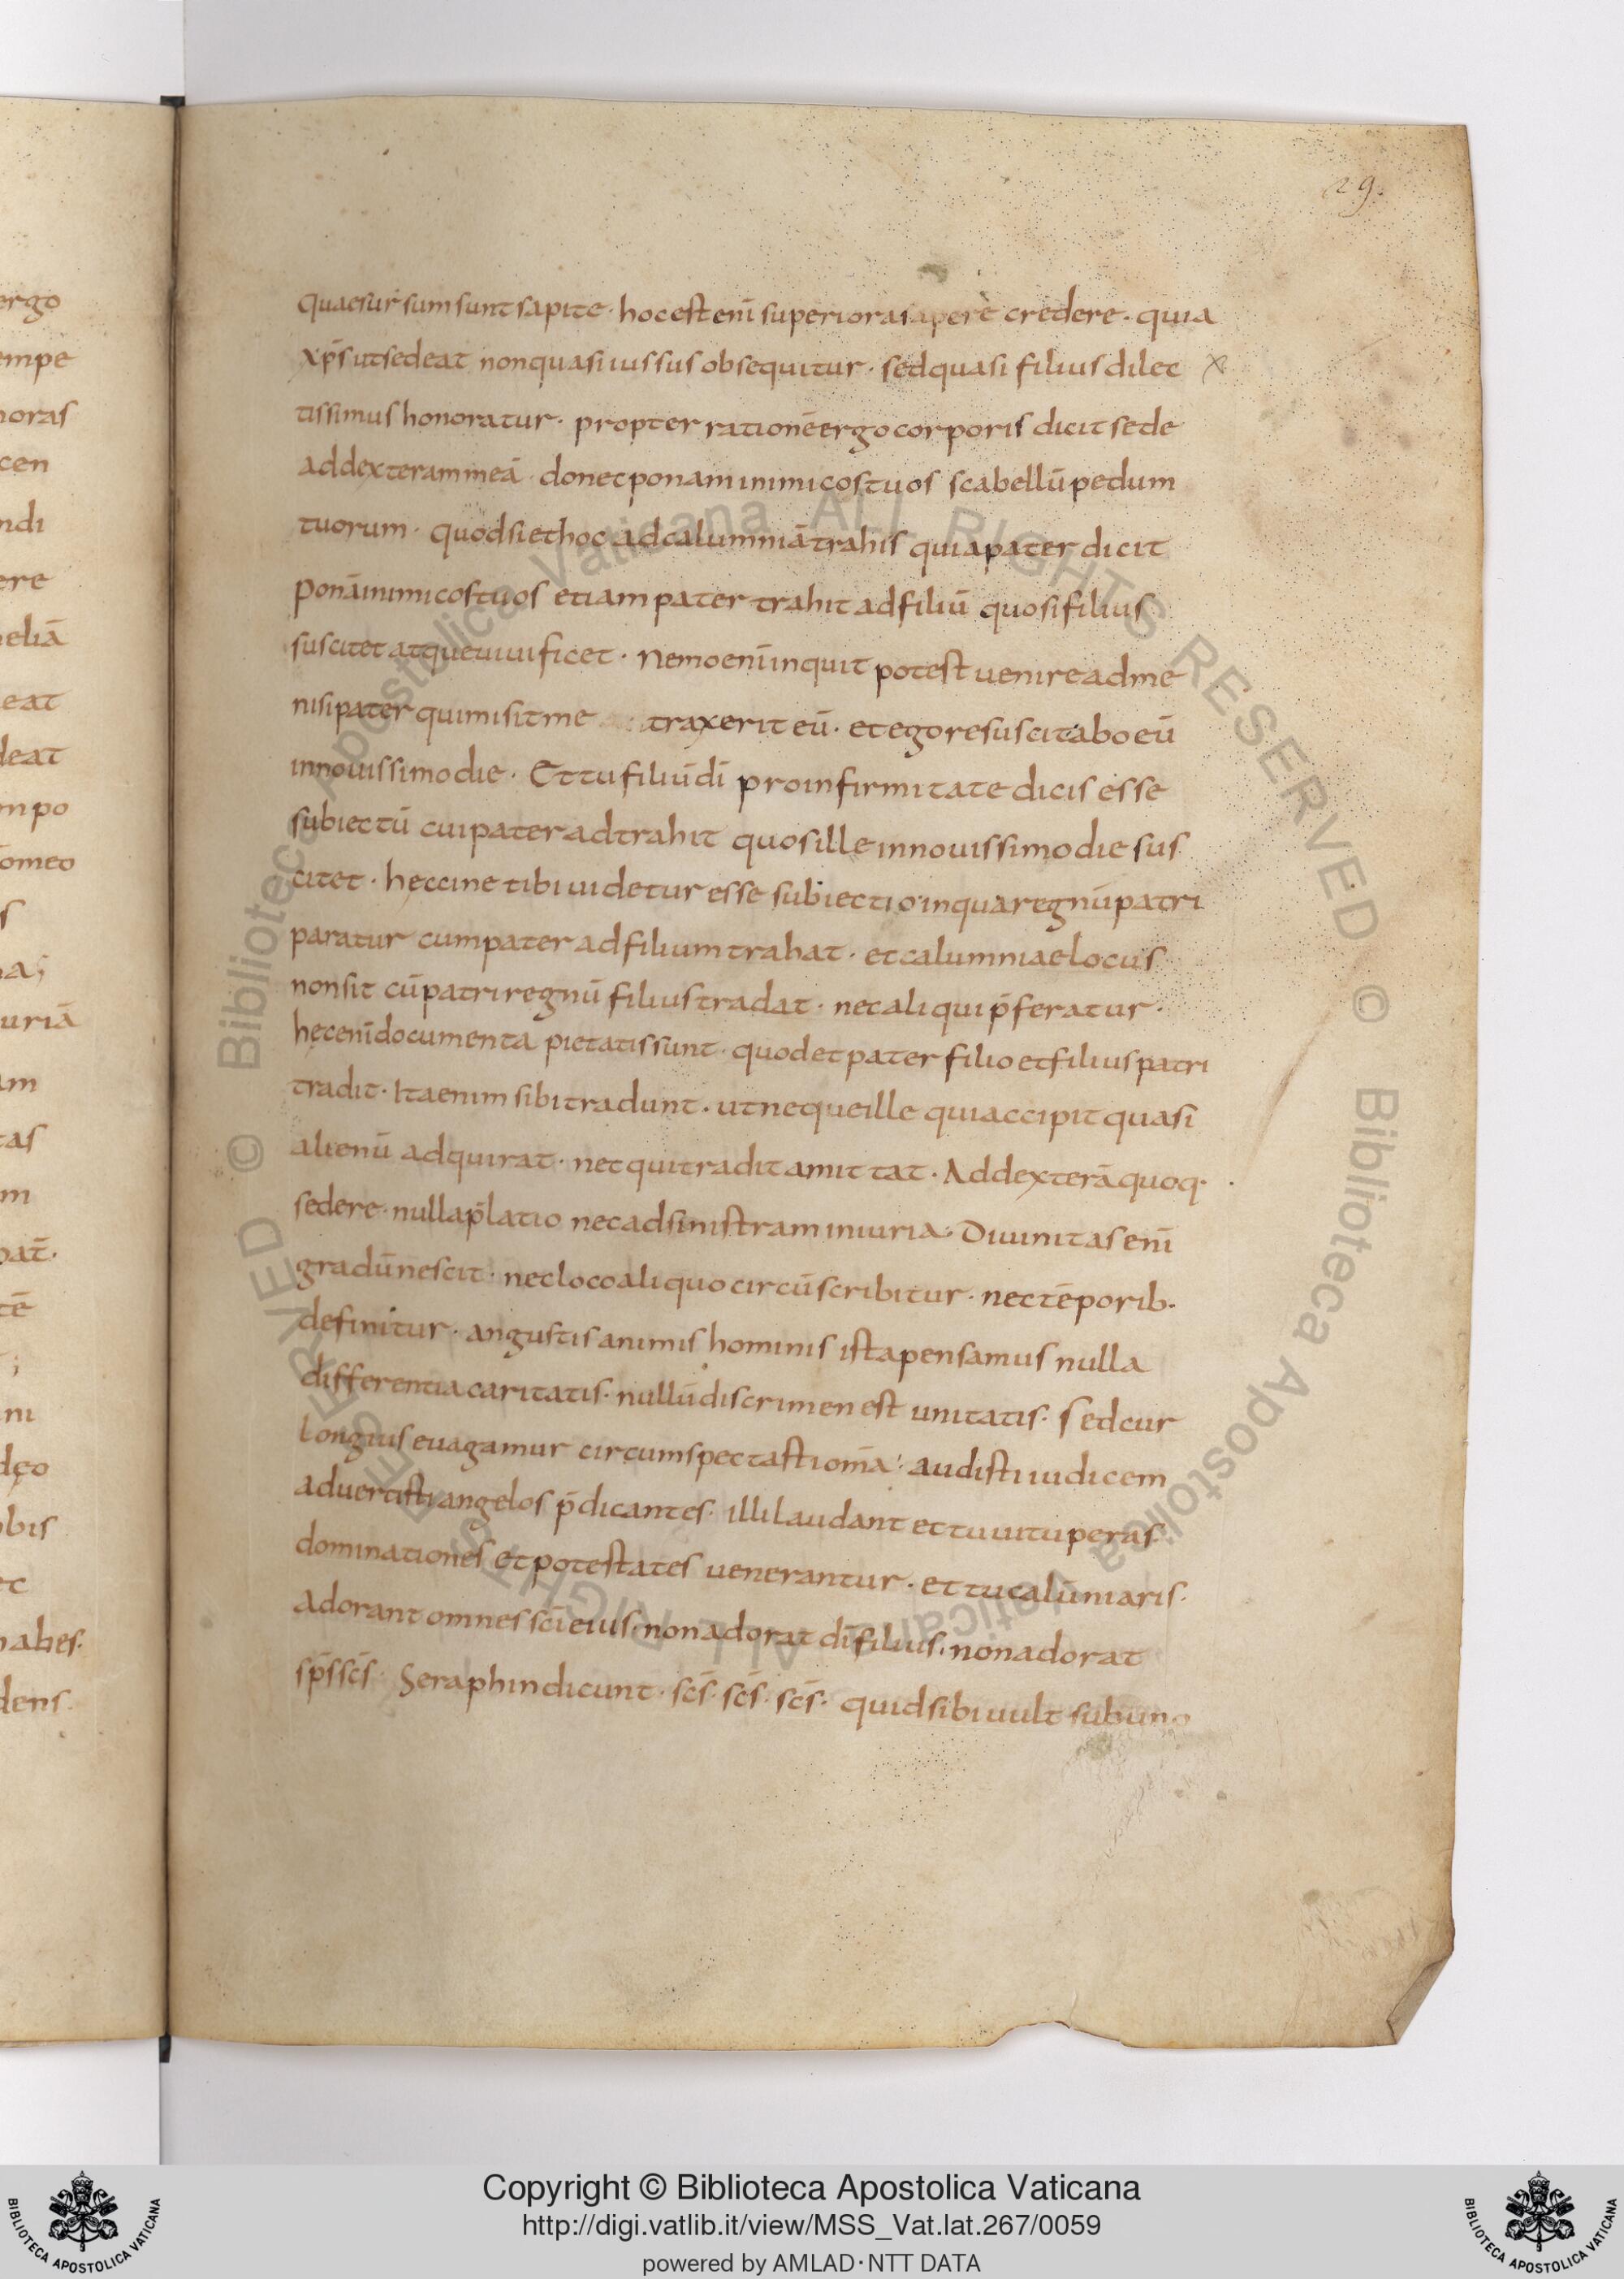 ergo
empe
noras
cen
ndi
ere
heliā
eat
deat
mpo
s
uriā
am
tas
m
pat̄.
tē
ni
deo
obis
ec
habes.
dens.
29.
quaesursum sunt sapite · hoc est enī superiora sapere credere · quia
xp̄s ut sedeat non quasi iussus obsequitur · sed quasi filius dilec
tissimus honoratur · propter rationē ergo corporis dicit sede
ad dexteram meā · donec ponam inimicos tuos scabellū pedum
tuorum · quodsi et hoc ad calumniā trahis quia pater dicit
ponā inimicos tuos etiam pater trahit ad filiū quos filius
suscitet atque uiuificet · Nemo enī inquit potest uenire ad me
nisi pater qui misit me traxerit eū · et ego resuscitabo eū
in nouissimo die · Et tu filiū dī pro infirmitate dicis esse
subiectū cui pater adtrahit quos ille in nouissimo die sus
citet · hęccine tibi uidetur esse subiectio in qua regnū patri
paratur cum pater ad filium trahat · et calumniae locus
non sit cū patri regnū filius tradat · nec aliqui p̄feratur ·
hęc enī documenta pietatis sunt · quod et pater filio et filius patri
tradit · Ita enim sibi tradunt · ut neque ille qui accipit quasi
alienū adquirat · nec qui tradit amittat · Ad dexterā quoq·
sedere · nulla p̄latio nec ad sinistram iniuria · Diuinitas enī
gradū nescit · nec loco aliquo circūscribitur · nec tēporib·
definitur · angustis animis hominis ista pensamus nulla
differentia caritatis · nullū discrimen est unitatis · Sed cur
longius euagamur circumspectasti om̄a · audisti iudicem
aduertisti angelos p̄dicantes · illi laudant et tu uituperas
dominationes et potestates uenerantur · et tu calūniaris ·
Adorant omnes scī eius · non adorat dī filius · non adorat
sp̄s scs̄ · Seraphin dicunt · scs̄ · scs̄ · scs̄ · quid sibi uult sub uno
Copyright © Biblioteca Apostolica Vaticana
http://digi.vatlib.it/view/MSS_Vat.lat.267/0059
powered by AMLAD · NTT DATA
BIBLIOTECA APOSTOLICA VATICANA
BIBLIOTECA APOSTOLICA VATICANA
© Biblioteca Apostolica Vaticana ALL RIGHTS RESERVED © Biblioteca Apostolica Vaticana ALL RIGHTS RESERVED